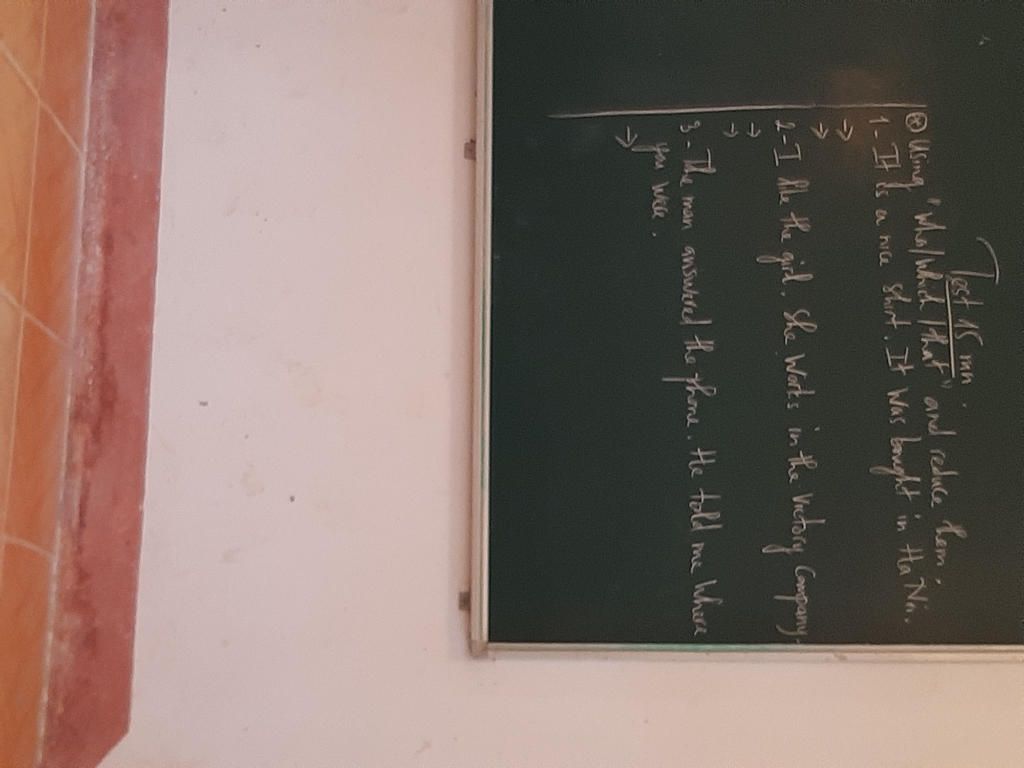 Test 15 min
⊛ Using "who/which/that" and reduce them.
1- It is a nice shirt. It was bought in Ha Noi.
→
→
2- I like the girl. She works in the Victory Company
→
→
3- The man answered the phone. He told me where
you were.
→